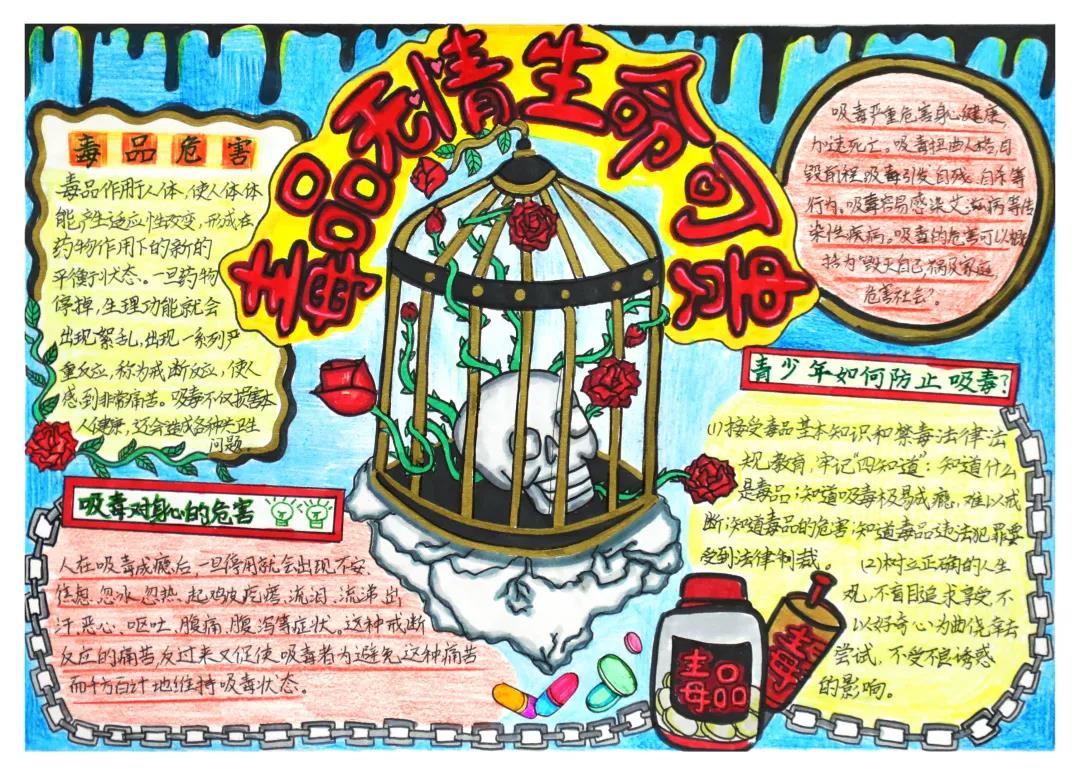 毒品无情生命可贵
毒品危害
毒品作用于人体,使人体体
能产生适应性改变,形成在
药物作用下的新的
平衡状态。一旦药物
停掉,生理功能就会
出现紊乱,出现一系列严
重反应,称为戒断反应,使人
感到非常痛苦。吸毒不仅损害本
人健康,还会造成各种公卫生
问题。
吸毒严重危害身心健康,
加速死亡。吸毒扭曲人格,自
毁前程,吸毒引发自残、自杀等
行为。吸毒容易感染艾滋病等传
染性疾病。吸毒的危害可以概
括为"毁灭自己祸及家庭,
危害社会"。
吸毒对身心的危害
人在吸毒成瘾后,一旦停用就会出现不安
焦虑、忽冰忽热、起鸡皮疙瘩、流泪、流涕、出
汗、恶心、呕吐、腹痛、腹泻等症状。这种戒断
反应的痛苦,反过来又促使吸毒者为避免这种痛苦
而千方百计地维持吸毒状态。
青少年如何防止吸毒?
(1)接受毒品基本知识和禁毒法律法
规教育,牢记"四知道":知道什么
是毒品;知道吸毒极易成瘾,难以戒
断;知道毒品的危害;知道毒品违法犯罪要
受到法律制裁。
(2)树立正确的人生
观,不盲目追求享受,不
以好奇心为由侥幸去
尝试,不受不良诱惑
的影响。
毒品
毒